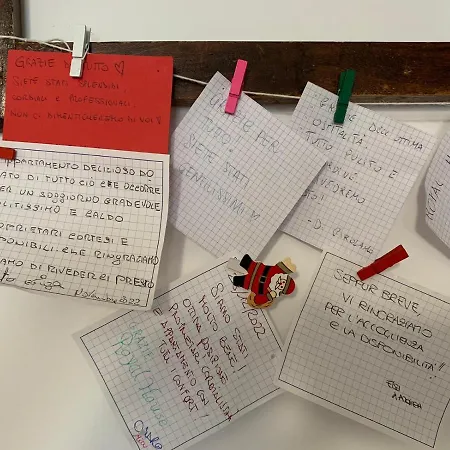 GRAZIE DI TUTTO ♡
SIETE STATI SPLENDIDI
CORDIALI E PROFESSIONALI
NON CI DIMENTICHEREMO DI VOI!
APPARTAMENTO DELIZIOSO DO
ATO DI TUTTO CIÒ CHE OCCORRE
ER UN SOGGIORNO GRADEVOLE
ULITISSIMO E CALDO
OPRIETARI CORTESI E
SPONIBILI CHE RINGRAZIAMO
AMO DI RIVEDERCI PRESTO
Novembre 2022
GRAZIE PER
TUTTO!
SIETE STATI
GENTILISSIMI
DELL'OTTIMA
OSPITALITÀ
TUTTO PULITO E
- D. GIROLAMO
2022
SIAMO STATI
MOLTO BENE!
OTTIMA POSIZIONE
PROPRIETARI CORDIALISSIMI
E APPARTAMENTO CON
TUTTI I COMFORT!
SEPPUR BREVE,
VI RINGRAZIAMO
PER L'ACCOGLIENZA
E LA DISPONIBILITÀ!!